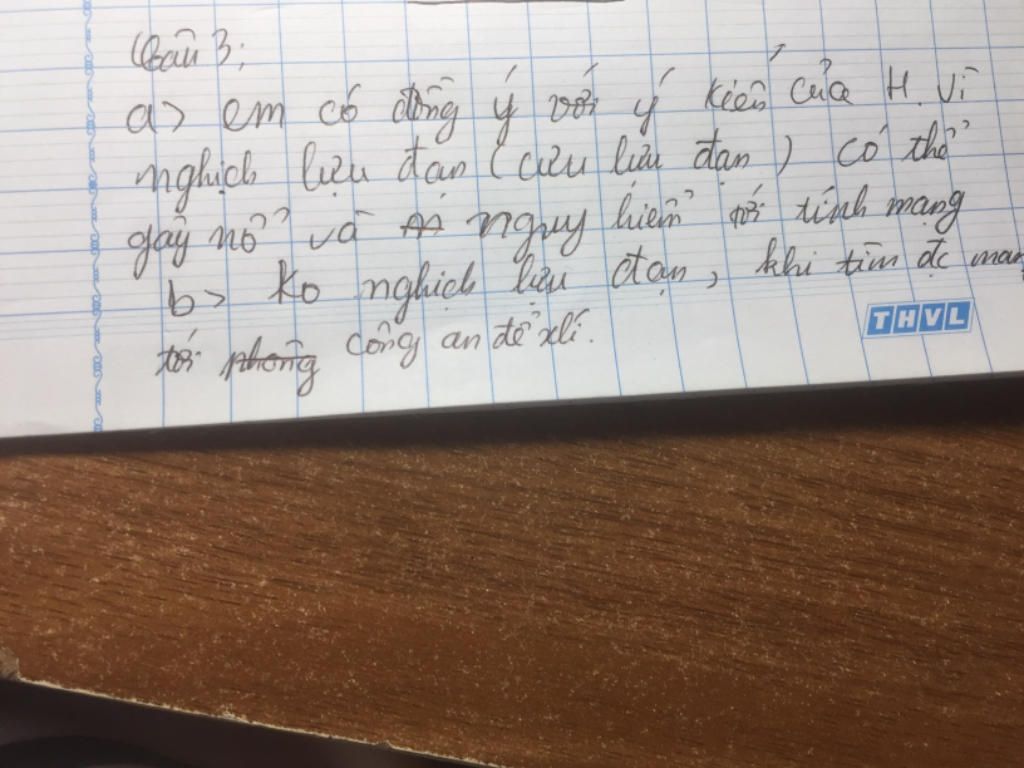 Câu 3:
a> em có đồng ý với ý kiến của H. Vì
nghịch lựu đạn (cưu lựu đạn) có thể
gây nổ và nguy hiểm tới tính mạng
b> Ko nghịch lựu đạn, khi tìm đc man
tới phòng công an để xlí.
THVL